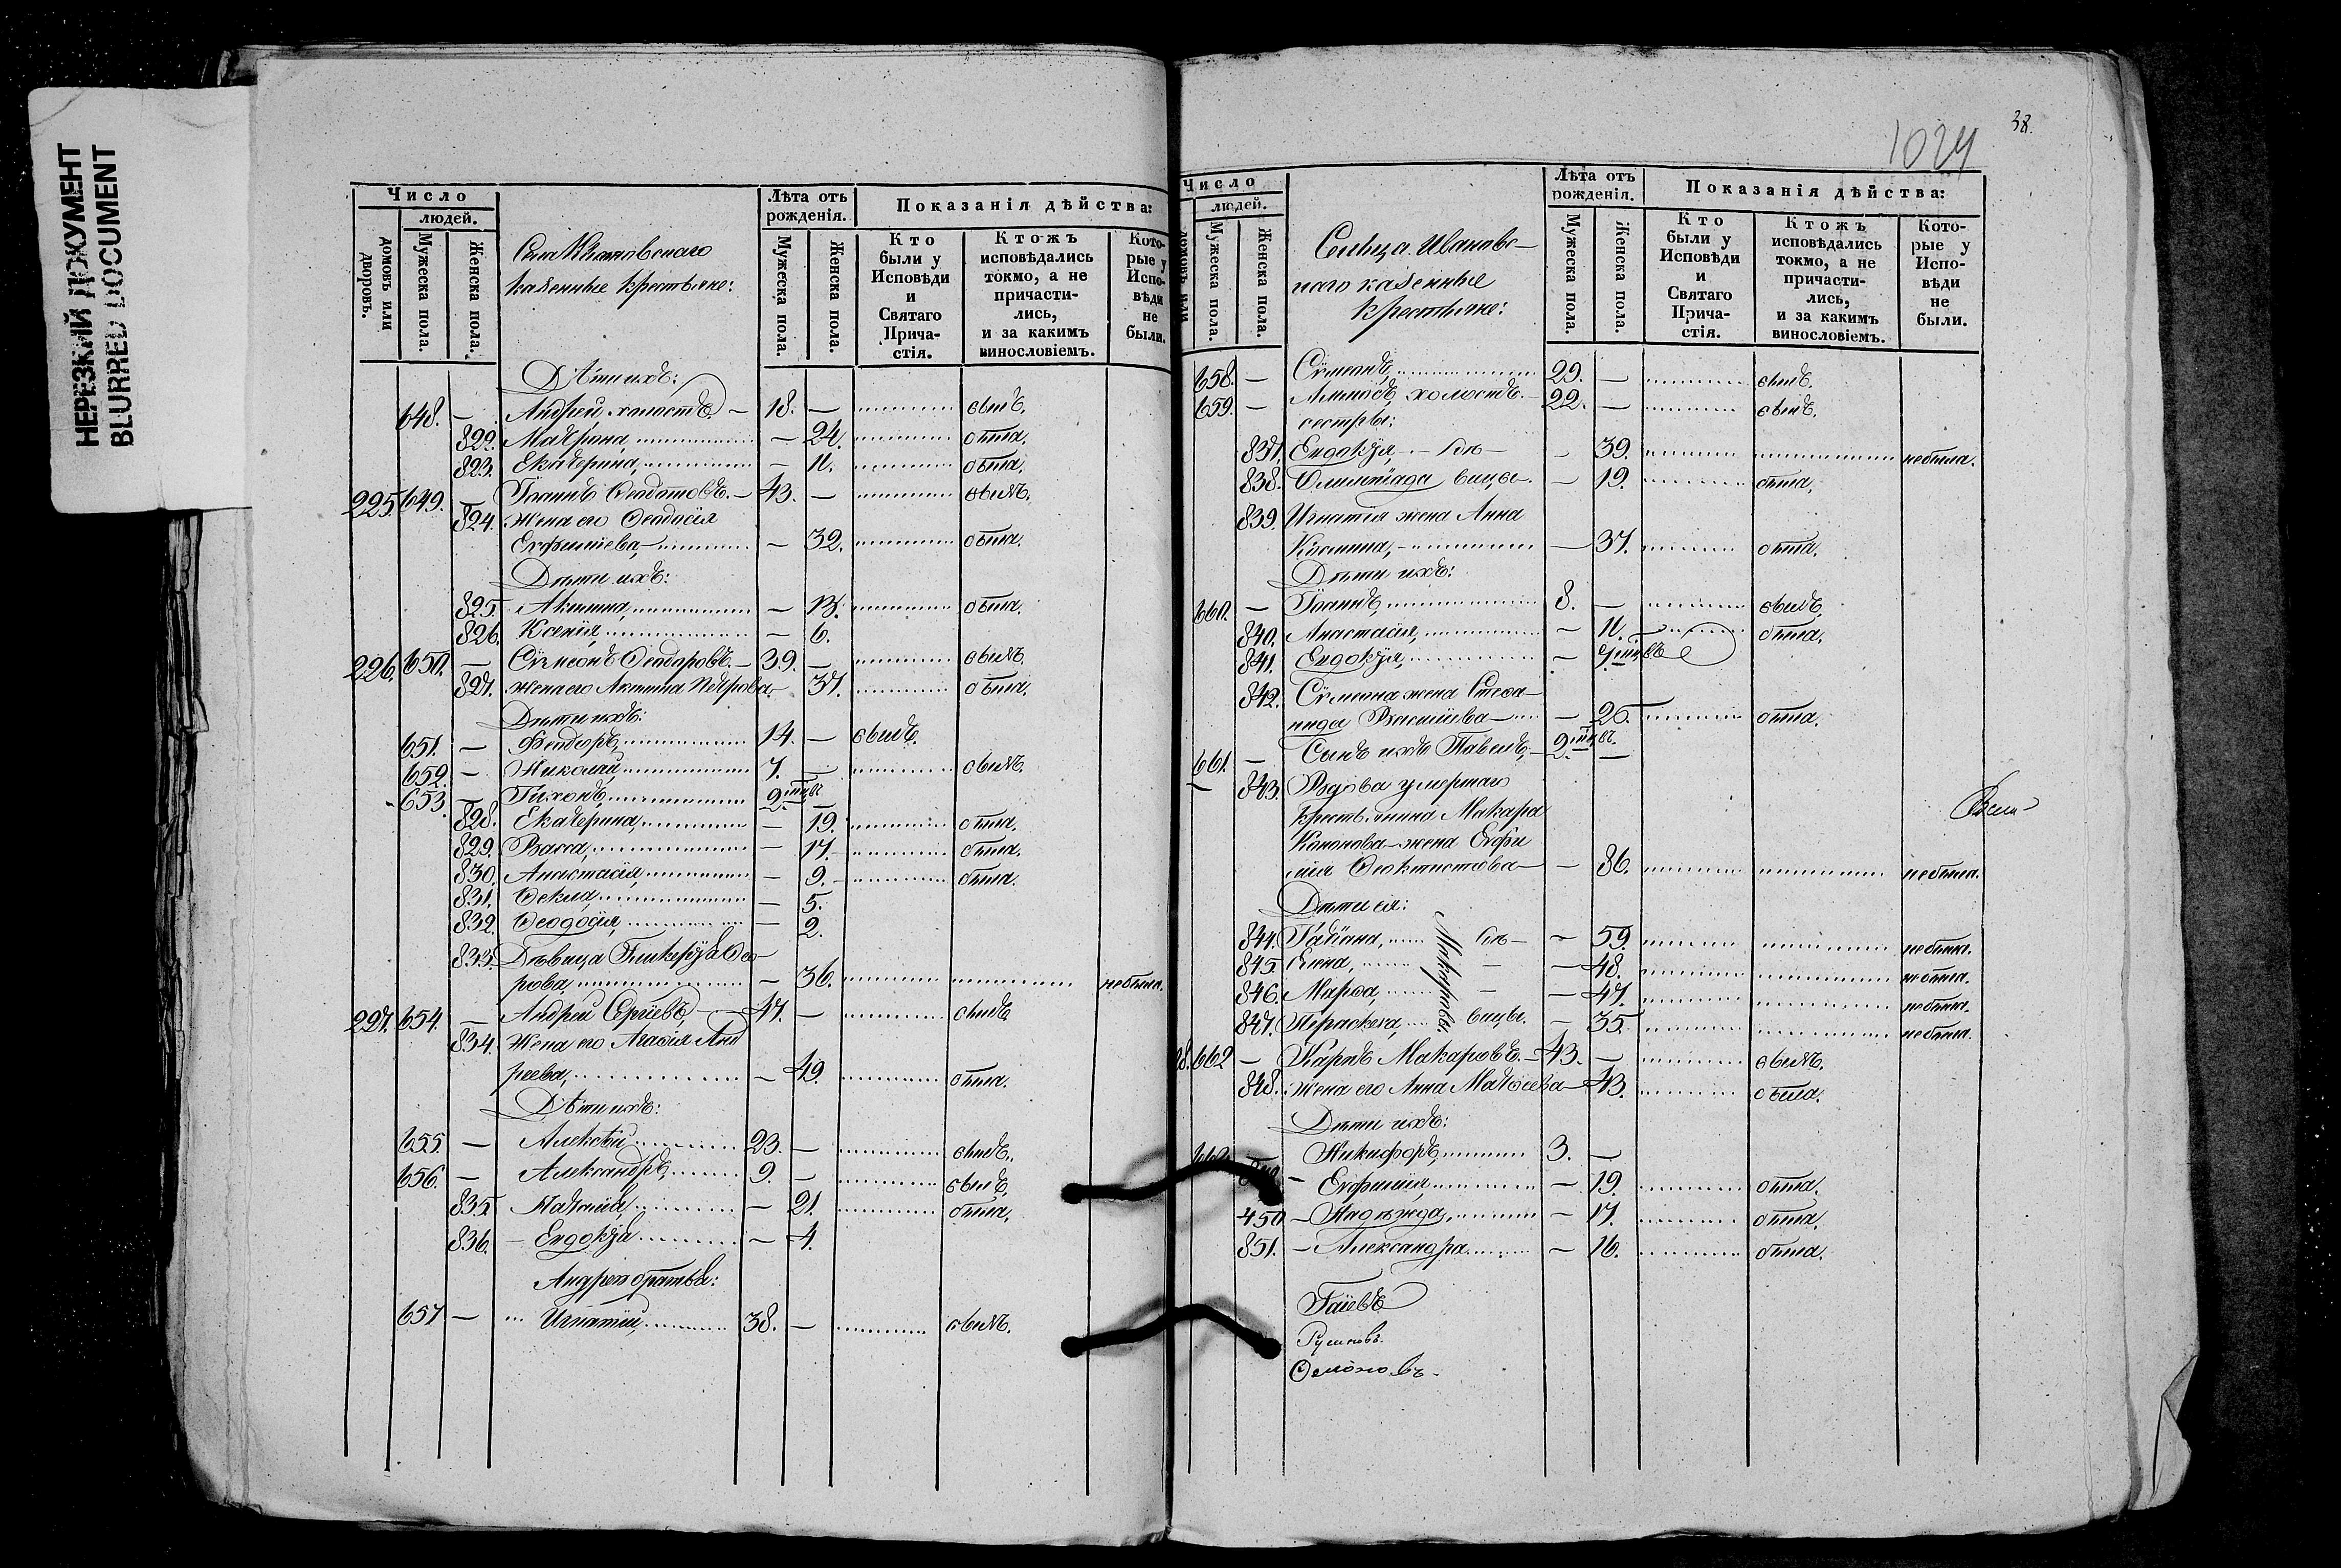 НЕРЕЗКИЙ ДОКУМЕНТ
BLURRED DOCUMENT
Число
людей.
домовъ или дворовъ.
Мужеска пола.
Женска пола.
казенные крестьяне:
Лѣта отъ рожденія.
Мужеска пола.
Женска пола.
Показанія дѣйства:
Кто были у Исповѣди и Святаго Прича-стія.
Ктожъ исповѣдались токмо, а не причасти-лись, и за какимъ винословіемъ.
Кото-рые у Испо-вѣди не были.
Дѣти ихъ:
648. — Андрей холостъ — 18. — былъ.
822. — 24. была.
823. Екатерина, — 11. была.
225. 649. — Іоаннъ — 43. — былъ.
824. Жена его Ѳеодосія
Евфиміева, — 32. была.
Дѣти их:
825. Акилина, — была.
826. Ксенія, — 6.
226. 650. — Сѵмеонъ Ѳеодоровъ. — 39. — былъ.
827. жена его Акилина Петрова — 37. была.
Дѣти ихъ:
651. — Ѳеодоръ, 14. — былъ.
652. — Николай, 7. — былъ.
653. — Тихонъ, —
828. Екатерина, — 19. была.
829. Васса, — 17. была.
830. Анастасія, — 9. была.
831. Ѳекла, — 5.
832. Ѳеодосія, — 2.
833. Дѣвица Гликерія Ѳео-
рова, — 36. небыла.
227. 654. — Андрей Сергіевъ, — 47. — былъ
834. Жена его Агаѳія Анд
реева, — 49. была.
Дѣти ихъ:
655. — Алексѣй 23. — былъ.
656. — Александръ, 9. — былъ.
835. — 21. была.
836. — Евдокія — 4.
Андрея братья:
657 — Игнатій, 38. — былъ.
38.
1024
Число
людей.
домовъ или
Мужеска пола.
Женска пола.
Сельца Ивановс-
каго казенные
крестьяне:
Лѣта отъ рожденія.
Мужеска пола.
Женска пола.
Показанія дѣйства:
Кто были у Исповѣди и Святаго Прича-стія.
Ктожъ исповѣдались токмо, а не причасти-лись, и за какимъ винословіемъ.
Кото-рые у Испо-вѣди не были.
658. — Сѵмеонъ, 29. — былъ.
659. — холостъ. 22. — былъ.
сестры:
837. Евдокія, — дѣ — 39. небыла.
838. Олимпіада вицы — 19. была.
839. Игнатія жена Анна
Космина, — 37. была.
Дѣти ихъ:
660. — Іоаннъ, 8. — былъ
840. Анастасія, — 11. была.
841. Евдокія, —
842. Сѵмеона жена Стефа-
нида Васильева — была.
661. — Сынъ ихъ Павелъ, —
843. Вдова умершаго
крестьянина Макара
Кононова жена Евфи
мія Ѳеоктистова — 86. небыла.
Дѣти ея:
844. Татіана, дѣ — 59. небыла.
845. Елена, — 48. небыла.
846. Марѳа, — 47. небыла.
847. Параскева, вицы. — 35. небыла.
Макаровы.
662 — Карпъ Макаровъ. — 43. — былъ.
848. жена его Анна Матѳеева — 43. была.
Дѣти ихъ:
— Никифоръ, 3. —
Евфимія, — 19. была.
450 — Надежда, — 17. была.
851. — Александра — 16. была.